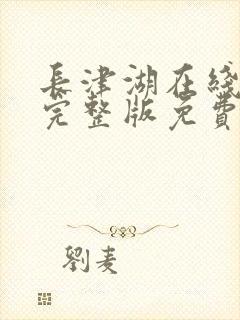 長津湖在綫
完整版免費
劉麦